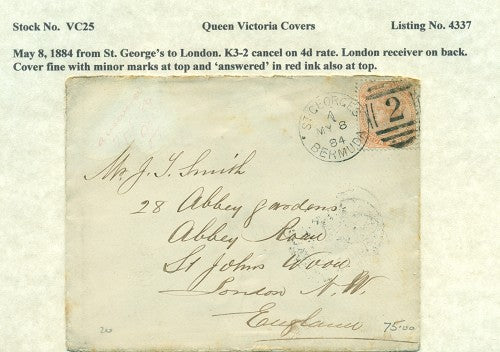 Stock No. VC25 Queen Victoria Covers Listing No. 4337
May 8, 1884 from St. George's to London. K3-2 cancel on 4d rate. London receiver on back.
Cover fine with minor marks at top and ‘answered’ in red ink also at top.
ST GEORGES
A
MY 8
84
BERMUDA
2
Mr. J. T. Smith
28 Abbey Gardens
Abbey Road
St Johns Wood
London N.W.
England
75.00